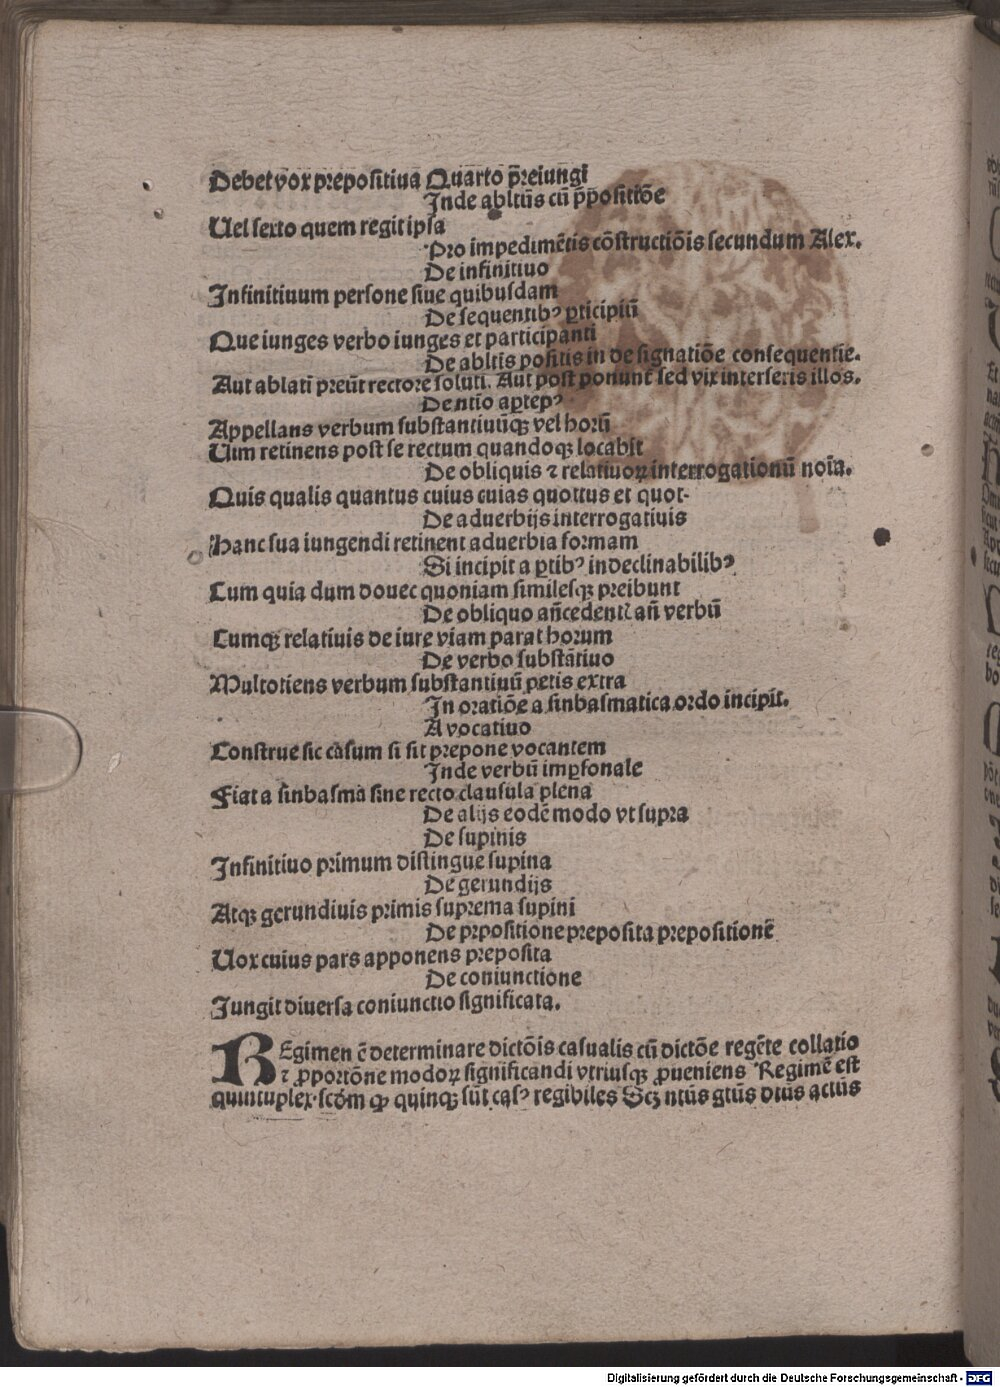 Debet vox prepositiua Quarto p̄reiungi
Inde abltūs cū p̄positiōe
Uel sexto quem regit ipsa
Pro impedimētis cōstructiōis secundum Alex.
De infinitiuo
Infinitiuum persone siue quibusdam
De sequentibꝰ ꝑticipiū
Que iunges verbo iunges et participanti
De abltīs positis in de signatiōe consequentie.
Aut ablati preūt rectore soluti. Aut post ponunt sed vix interseris illos.
De ntīo a ꝑte pꝰ
Appellans verbum substantiuūqꝫ vel horū
Uim retinens post se rectum quandoqꝫ locabit
De obliquis ⁊ relatiuoꝝ interrogationū noīa.
Quis qualis quantus cuius cuias quottus et quot.
De aduerbijs interrogatiuis
Hanc sua iungendi retinent aduerbia formam
Si incipit a ꝑtibꝰ indeclinabilibꝰ
Cum quia dum donec quoniam similesqꝫ preibunt
De obliquo an̄cedenti an̄ verbū
Cumqꝫ relatiuis de iure viam parat horum
De verbo substātiuo
Multotiens verbum substantiuū petis extra
In oratiōe a sinbasmatica ordo incipit.
A vocatiuo
Construe sic casum si sit prepone vocantem
Inde verbū imꝑsonale
Fiat a sinbasma sine recto clausula plena
De alijs eodē modo vt supra
De supinis
Infinitiuo primum distingue supina
De gerundijs
Atqꝫ gerundiuis primis suprema supini
De prpositione preposita prepositionē
Uox cuius pars apponens preposita
De coniunctione
Jungit diuersa coniunctio significata.
REgimen ē determinare dictōis casualis cū dictōe regēte collatio
⁊ ꝓportōne modoꝝ significandi vtriusqꝫ ꝓueniens Regimē est
quintuplex. scdm ꝙ quinqꝫ sūt casꝰ regibiles Scꝫ ntūs gtūs dtūs actūs
Digitalisierung gefördert durch die Deutsche Forschungsgemeinschaft - DFG